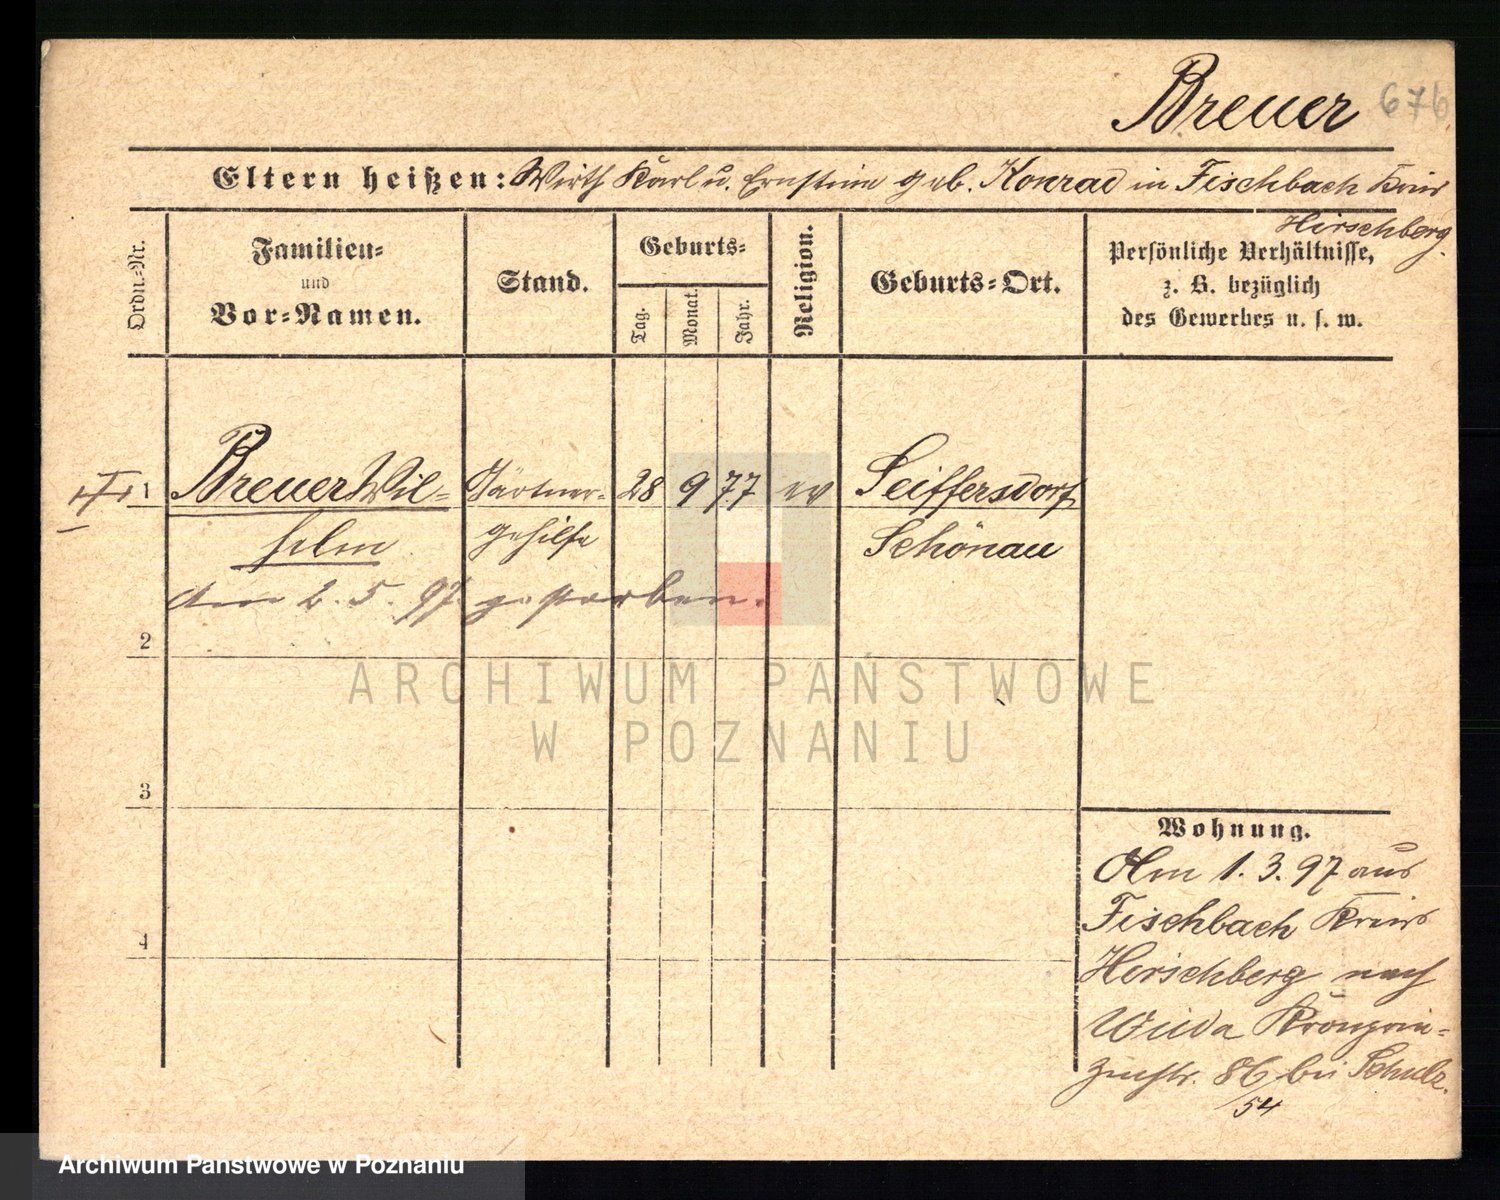 Breuer 676
Eltern heißen: Wirth Karl u. Ernstine geb. Konrad in Fischbach Kreis
Hirschberg.
Ordn.-Nr.
Familien-
und
Vor-Namen.
Stand.
Geburts-
Tag.
Monat.
Jahr.
Religion.
Geburts-Ort.
Persönliche Verhältnisse,
z. B. bezüglich
des Gewerbes u. s. w.
1 Breuer Wil- Gärtner- 28 9 77 ev Seiffersdorf
helm gehilfe Schönau
Am 2. 5. 97. gestorben.
2
3
4
Wohnung.
Am 1. 3. 97 aus
Fischbach Kreis
Hirschberg nach
Wilda Kronprin-
zenstr. 86 bei Schulz.
54
ARCHIWUM PAŃSTWOWE
W POZNANIU
Archiwum Państwowe w Poznaniu